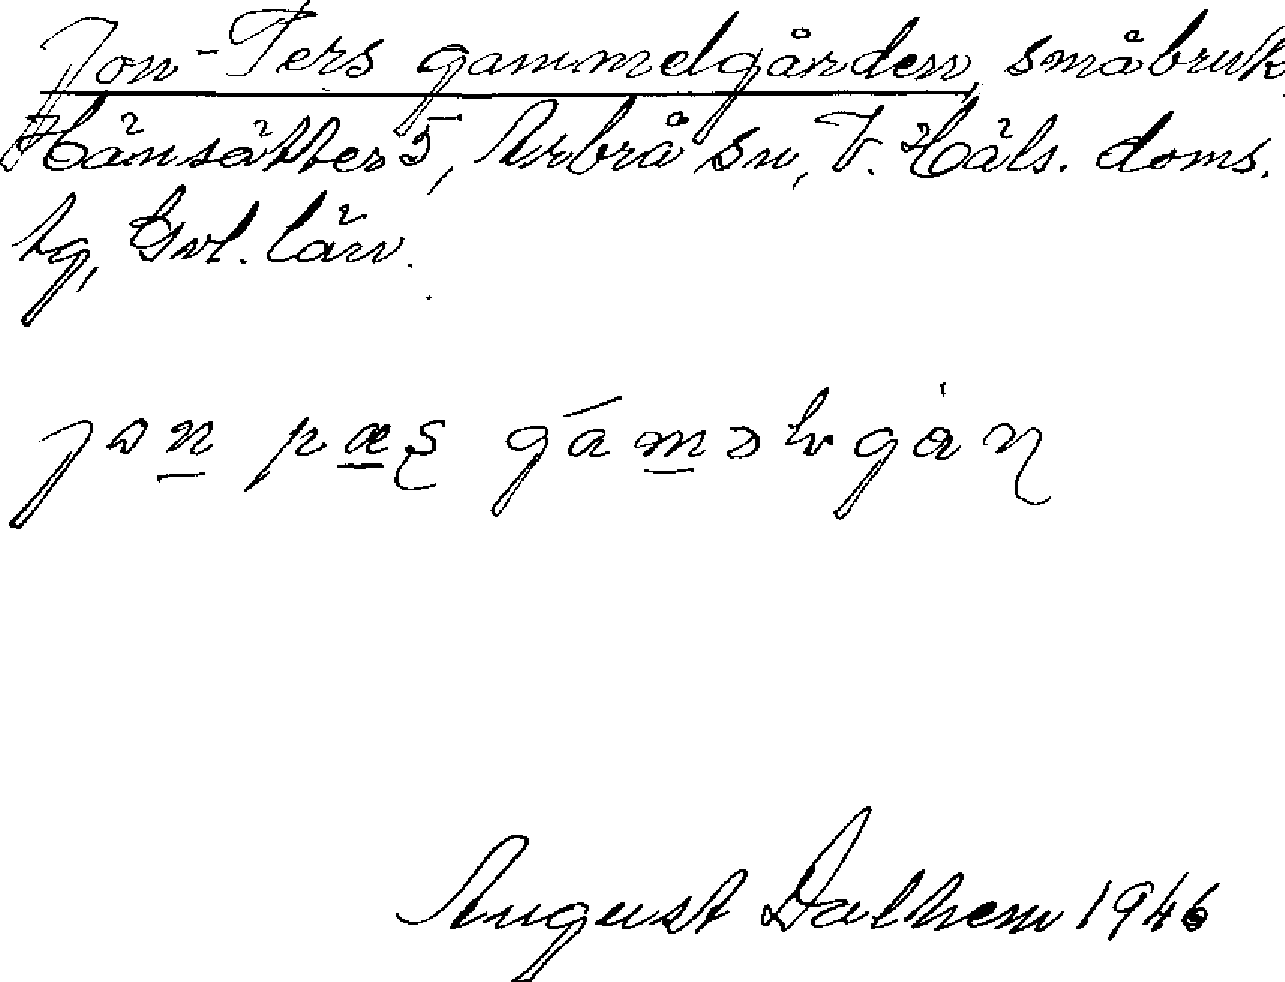 Jon-Pers gammelgården, småbruk,
Hänsätter 5, Arbrå sn, V. Häls. doms.
tg, Gvl. län.
jɔn pæʂ gáməlgàɳ
August Dalhem 1946